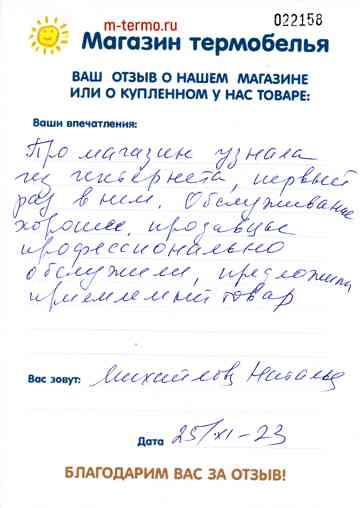 m-termo.ru
022158
Магазин термобелья
ВАШ ОТЗЫВ О НАШЕМ МАГАЗИНЕ
ИЛИ О КУПЛЕННОМ У НАС ТОВАРЕ:
Ваши впечатления:
Про магазин узнала
из интернета, первый
раз в нем. Обслуживание
хорошее, продавцы
профессионально
обслужили, предложили
приемлемый товар
Вас зовут: Михайлова Наталья
Дата 25/XI-23
БЛАГОДАРИМ ВАС ЗА ОТЗЫВ!